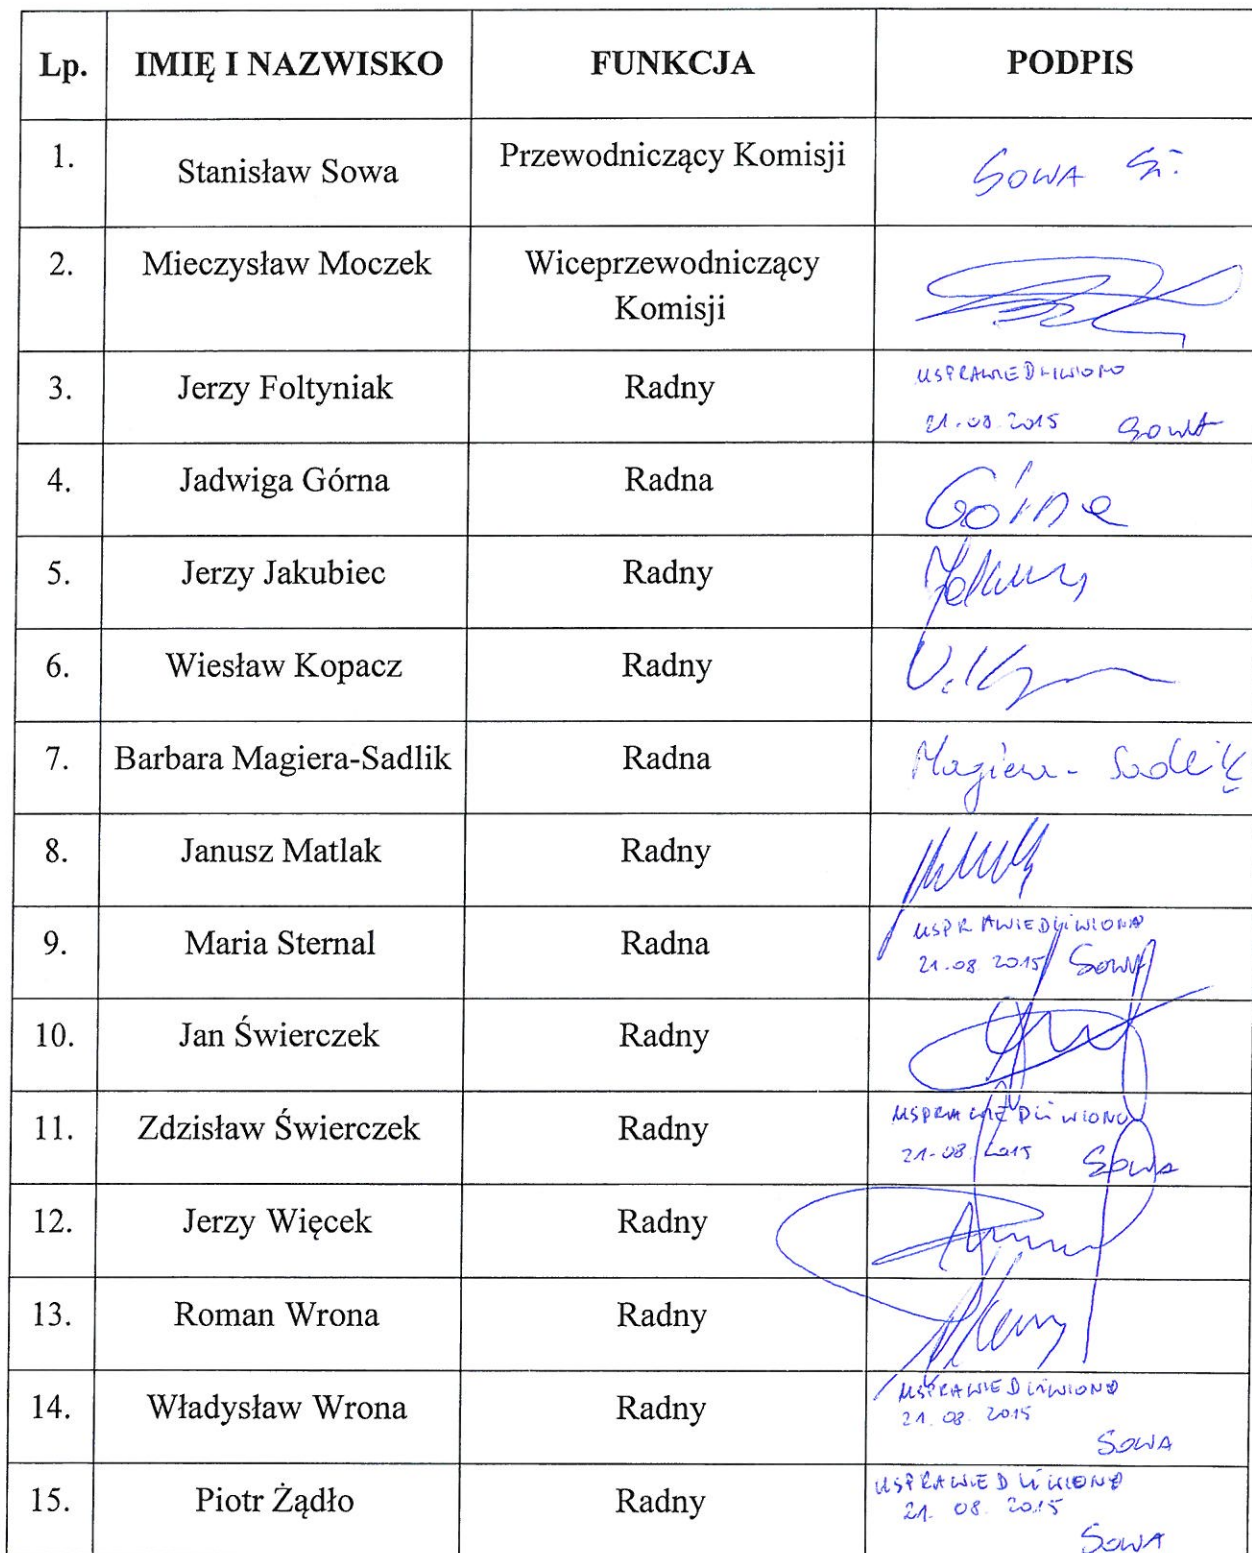 Lp. IMIĘ I NAZWISKO FUNKCJA PODPIS
1. Stanisław Sowa Przewodniczący Komisji SOWA St.
2. Mieczysław Moczek Wiceprzewodniczący
Komisji
3. Jerzy Foltyniak Radny USPRAWIEDLIWIONO
21.08.2015 Sowa
4. Jadwiga Górna Radna Górna
5. Jerzy Jakubiec Radny
6. Wiesław Kopacz Radny
7. Barbara Magiera-Sadlik Radna Magiera-Sadlik
8. Janusz Matlak Radny
9. Maria Sternal Radna USPRAWIEDLIWIONO
21.08.2015 Sowa
10. Jan Świerczek Radny
11. Zdzisław Świerczek Radny USPRAWIEDLIWIONO
21-08.2015 Sowa
12. Jerzy Więcek Radny
13. Roman Wrona Radny
14. Władysław Wrona Radny USPRAWIEDLIWIONO
21.08.2015
SOWA
15. Piotr Żądło Radny USPRAWIEDLIWIONO
21.08.2015
SOWA